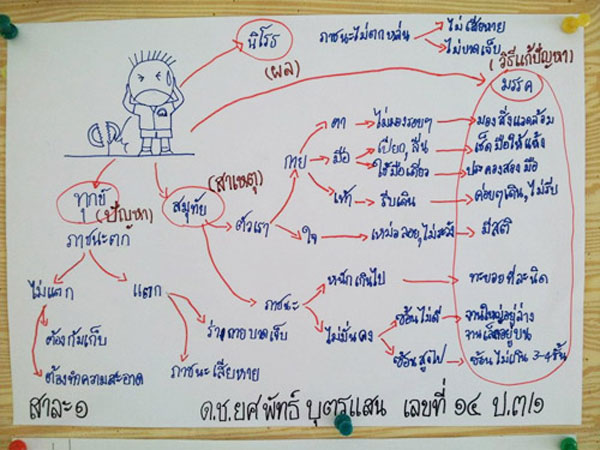 นิโรธ
(ผล)
ภาชนะไม่ตกหล่น
ไม่เสียหาย
ไม่บาดเจ็บ
(วิธีแก้ปัญหา)
มรรค
ทุกข์
(ปัญหา)
ภาชนะตก
ไม่แตก
แตก
ต้องก้มเก็บ
ต้องทำความสะอาด
ร่างกายบาดเจ็บ
ภาชนะเสียหาย
สมุทัย
(สาเหตุ)
ตัวเรา
กาย
ตา
ไม่มองรอบๆ
มองสิ่งแวดล้อม
มือ
เปียก, ลื่น
เช็ดมือให้แห้ง
ใช้มือเดียว
ประคองสองมือ
เท้า
รีบเดิน
ค่อยๆเดิน, ไม่รีบ
ใจ
เหม่อลอย, ไม่ระวัง
มีสติ
ภาชนะ
หนักเกินไป
ทะยอยทีละนิด
ไม่มั่นคง
ซ้อนไม่ดี
จานใหญ่อยู่ล่าง
จานเล็กอยู่บน
ซ้อนสูงไป
ซ้อนไม่เกิน 3-4 ชั้น
สาละ๑
ด.ช.ยศพัทธ์ บุตรแสน เลขที่ ๑๔ ป.๓/๑